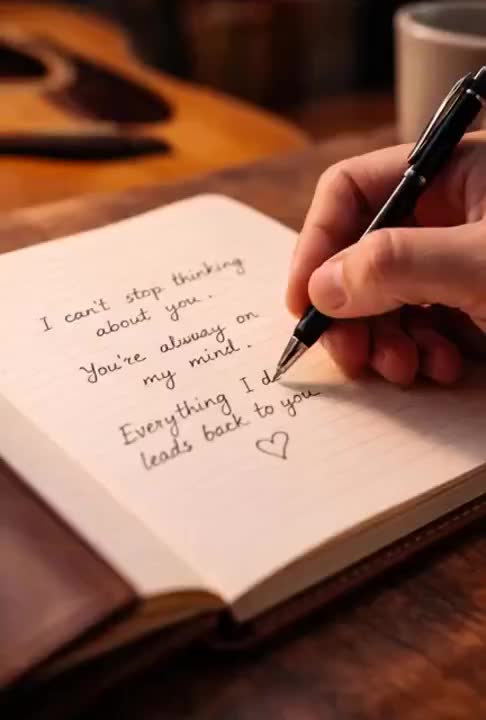 I can't stop thinking
about you.
You're alway on
my mind.
Everything I d
leads back to you
♡